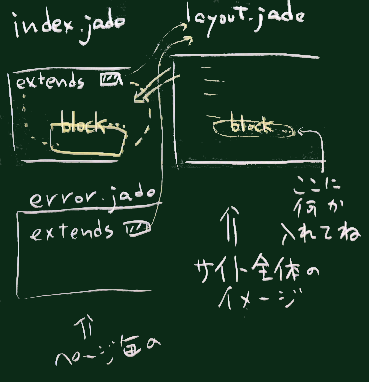 index.jade
layout.jade
extends
block
block
error.jade
extends
ここに
何か
入れてね
サイト全体の
イメージ
ページ毎の